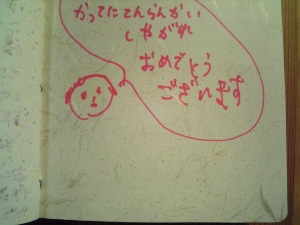 かってにてんらんかい
しやがれ
おめでとう
ございます